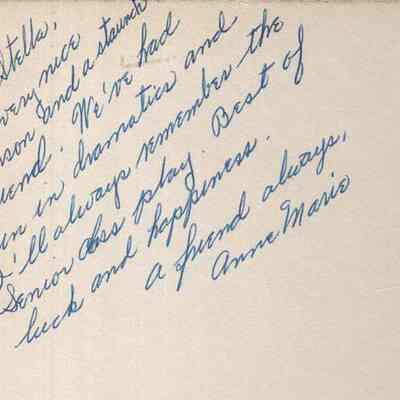 Stella,
very nice
rson and a staunch
iend. We've had
un in dramatics and
I'll always remember the
Senior class play. Best of
luck and happiness.
a friend always,
Anne Marie